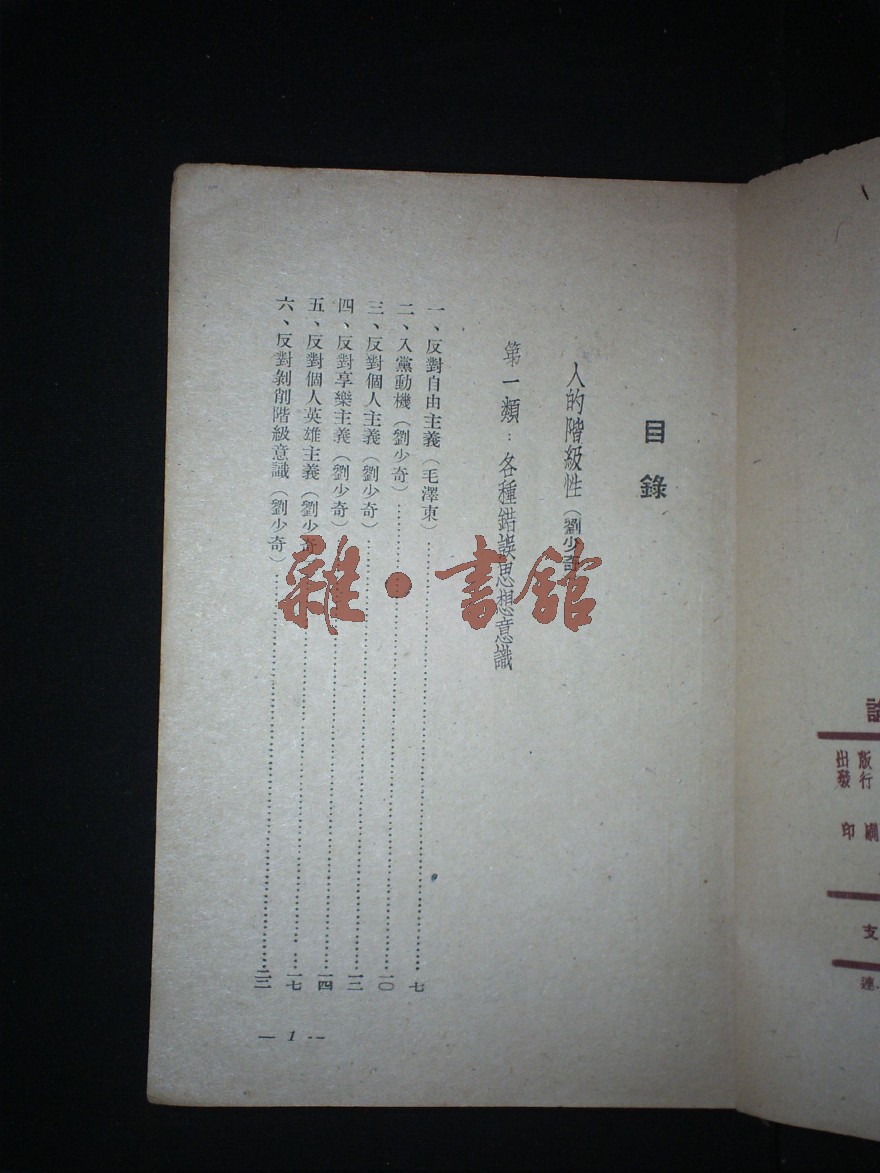 目錄
人的階級性（劉少奇）
第一類：各種錯誤思想意識
一、反對自由主義（毛澤東）……七
二、入黨動機（劉少奇）……一〇
三、反對個人主義（劉少奇）……一二
四、反對享樂主義（劉少奇）……一四
五、反對個人英雄主義（劉少奇）……一七
六、反對剝削階級意識（劉少奇）……二三
— 1 —
雜·書館
出版
發行
印刷
支
連